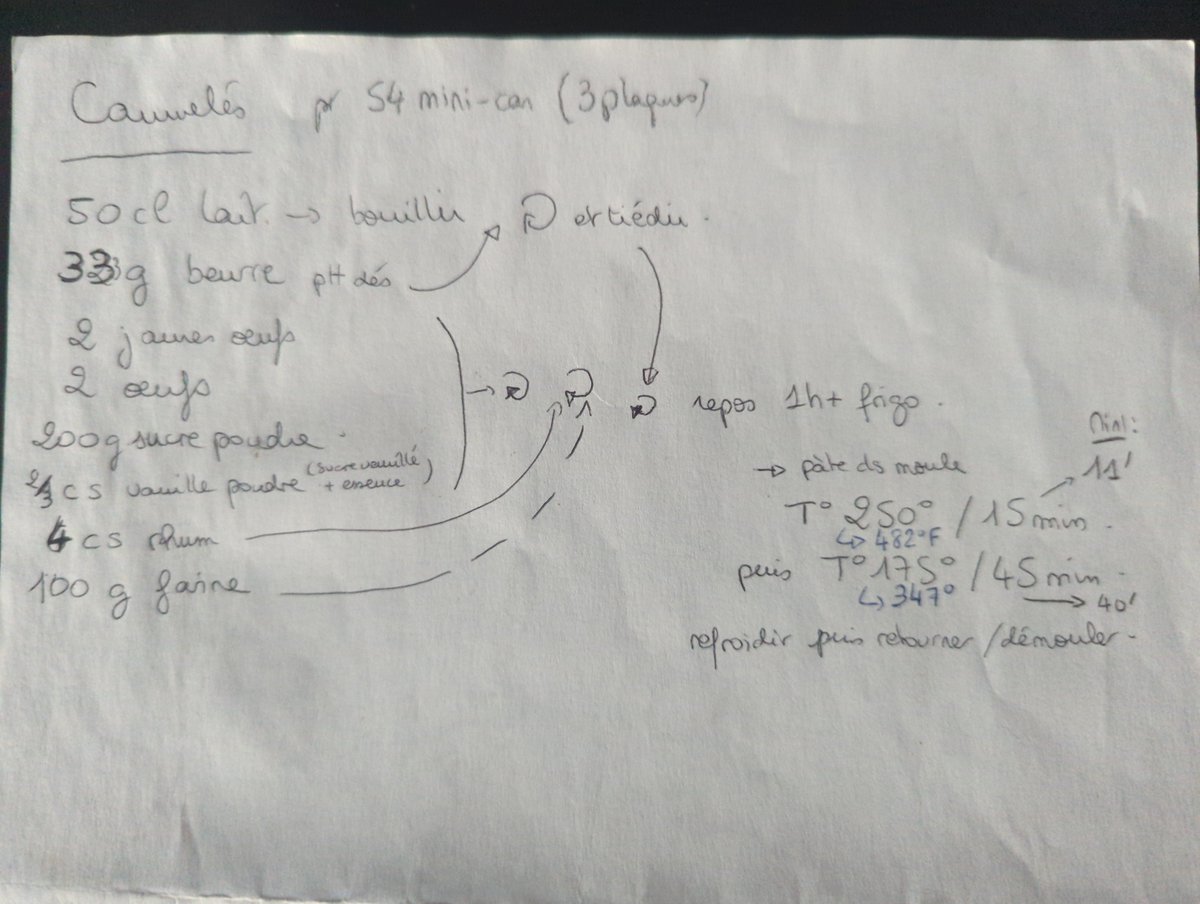 Cannelés pr 54 mini-can (3 plaques)
50 cl lait → bouillir et tiédir.
33g beurre pH dés
2 jaunes œufs
2 œufs
200g sucre poudre.
2/3 cs vanille poudre (sucre vanillé + essence)
4 cs rhum
100 g farine
repos 1h+ frigo.
→ pâte ds moule
Mini:
11'
T° 250° / 15 min.
↳ 482°F
puis T° 175° / 45 min.
↳ 347° → 40'
refroidir puis retourner / démouler.